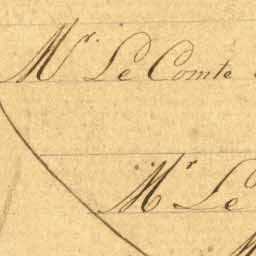 Mr. Le Comte
Mr Le